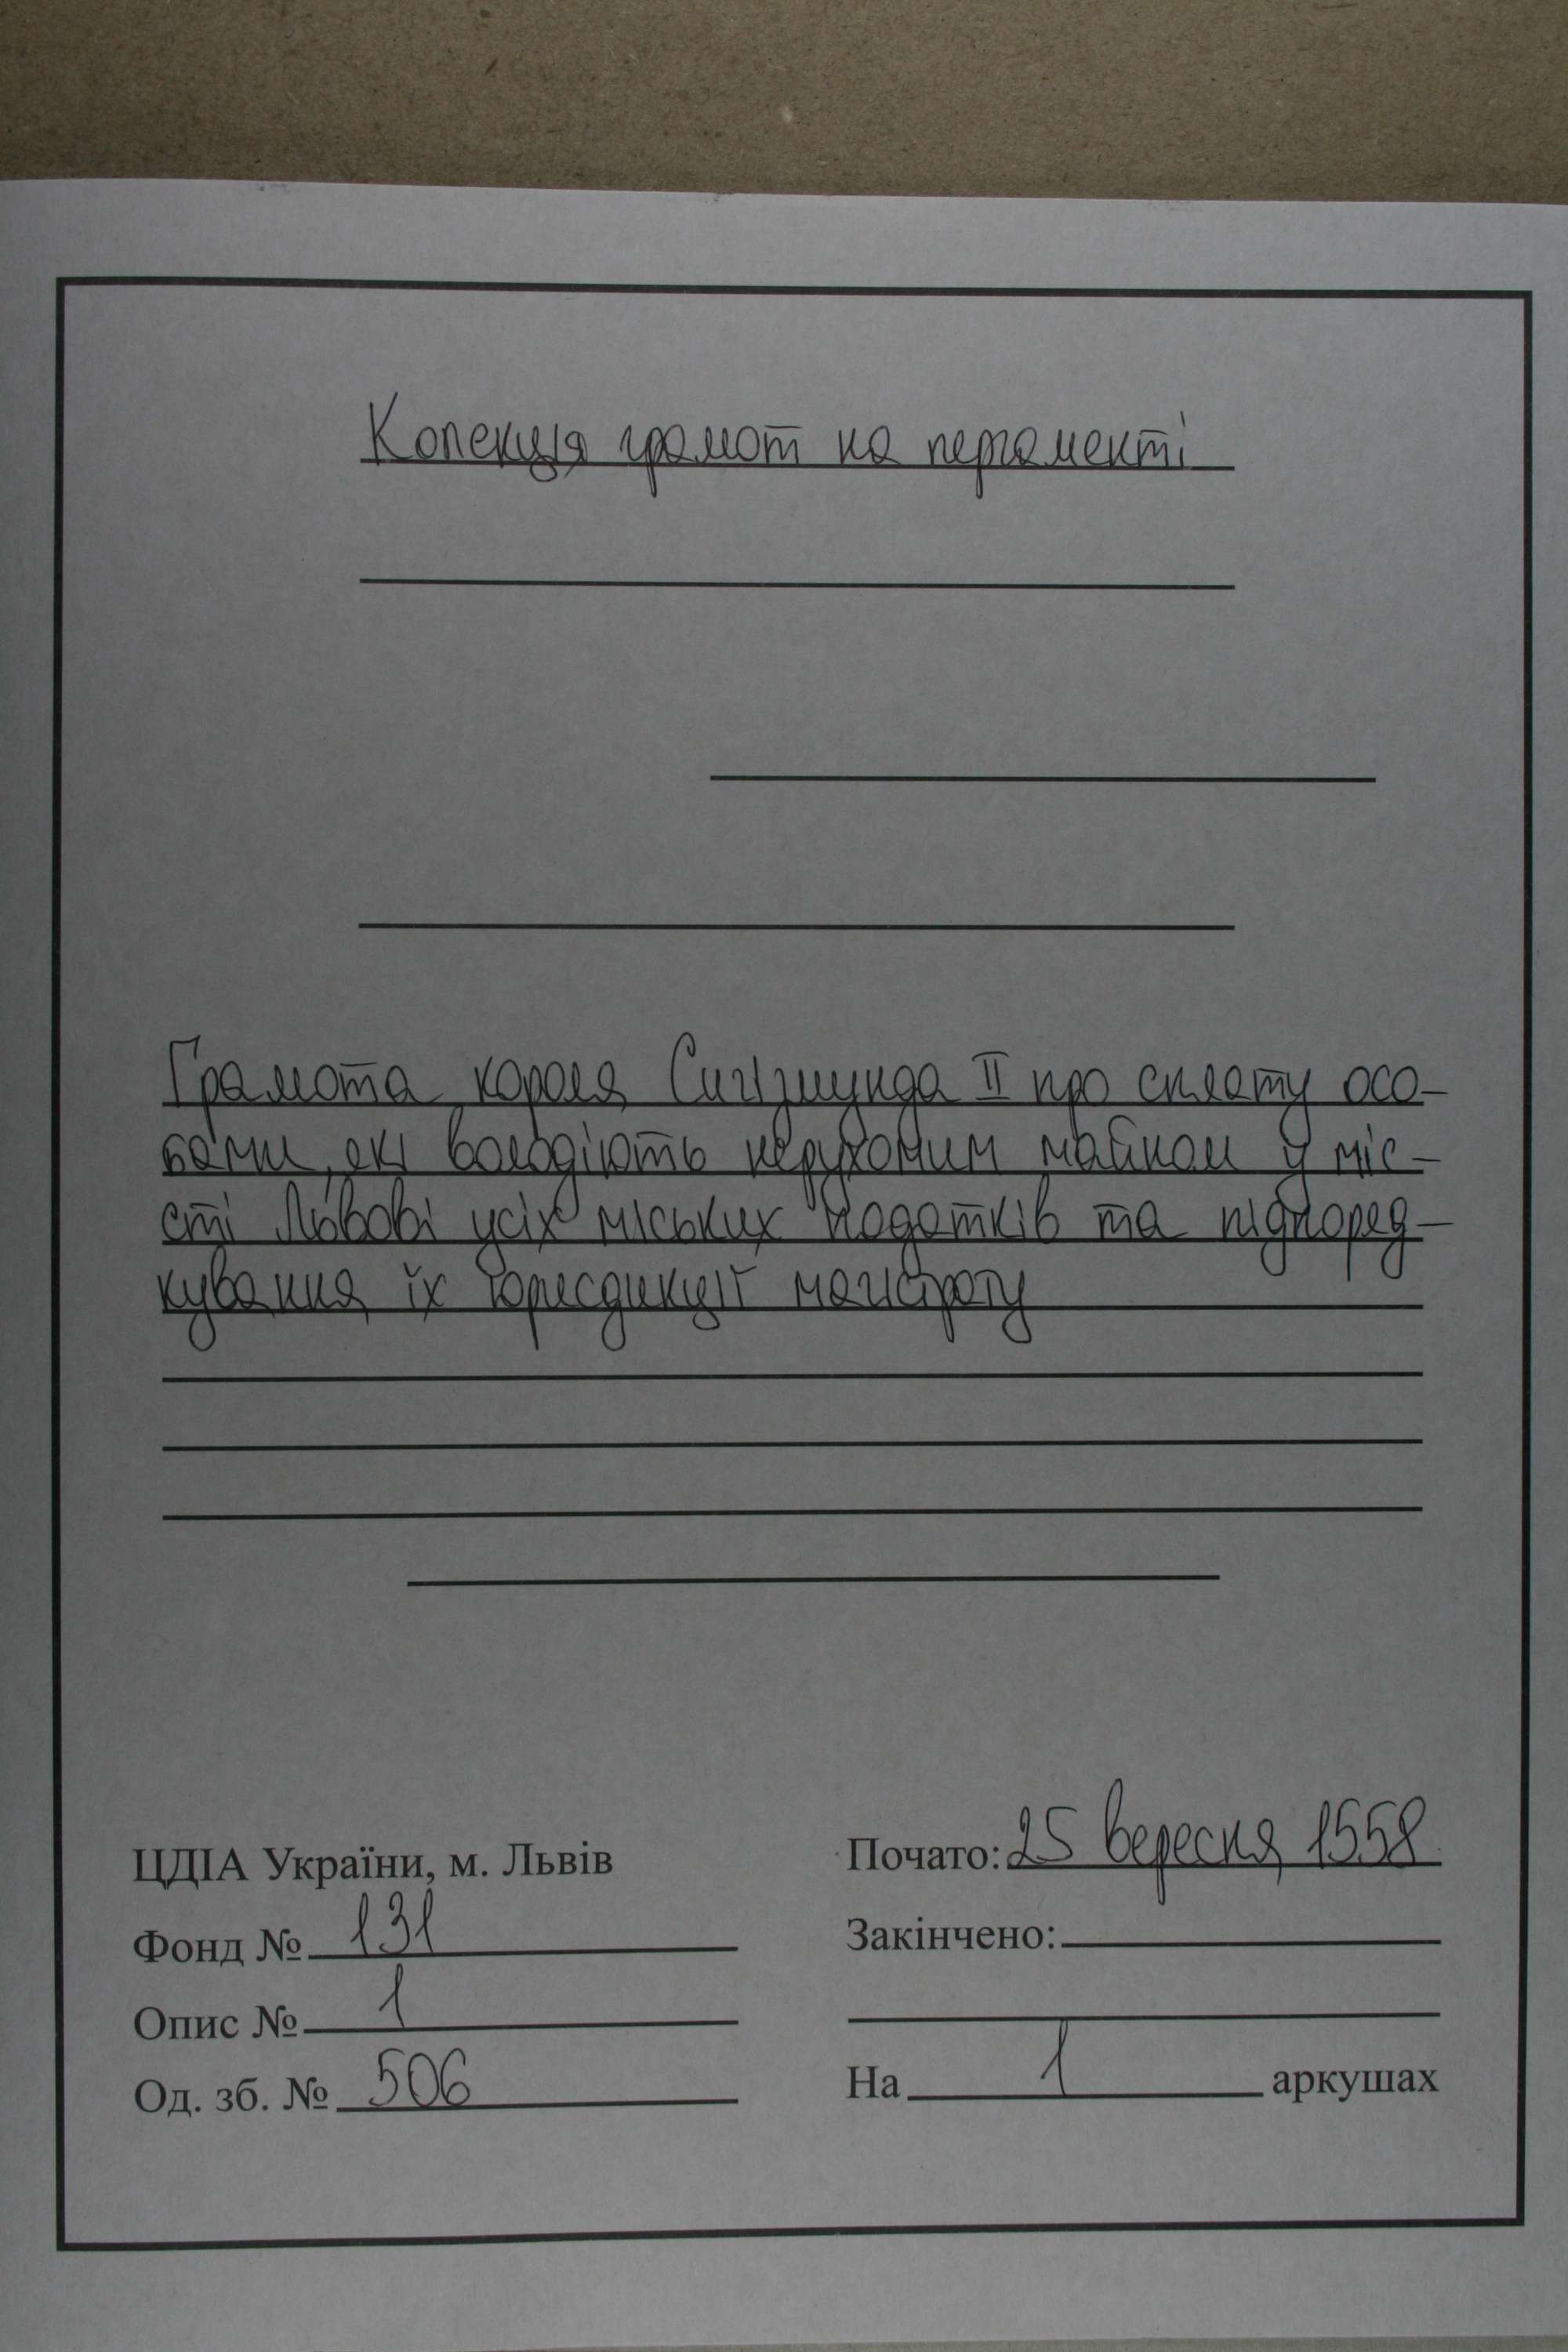 Колекція грамот на пергаменті
Грамота короля Сигізмунда II про сплату осо-
бами, які володіють нерухомим майном у міс-
сті Львові усіх міських податків та підпоряд-
кування їх юрисдикції магістрату
ЦДІА України, м. Львів
Фонд № 131
Опис № 1
Од. зб. № 506
Почато: 25 вересня 1558
Закінчено:
На 1 аркушах